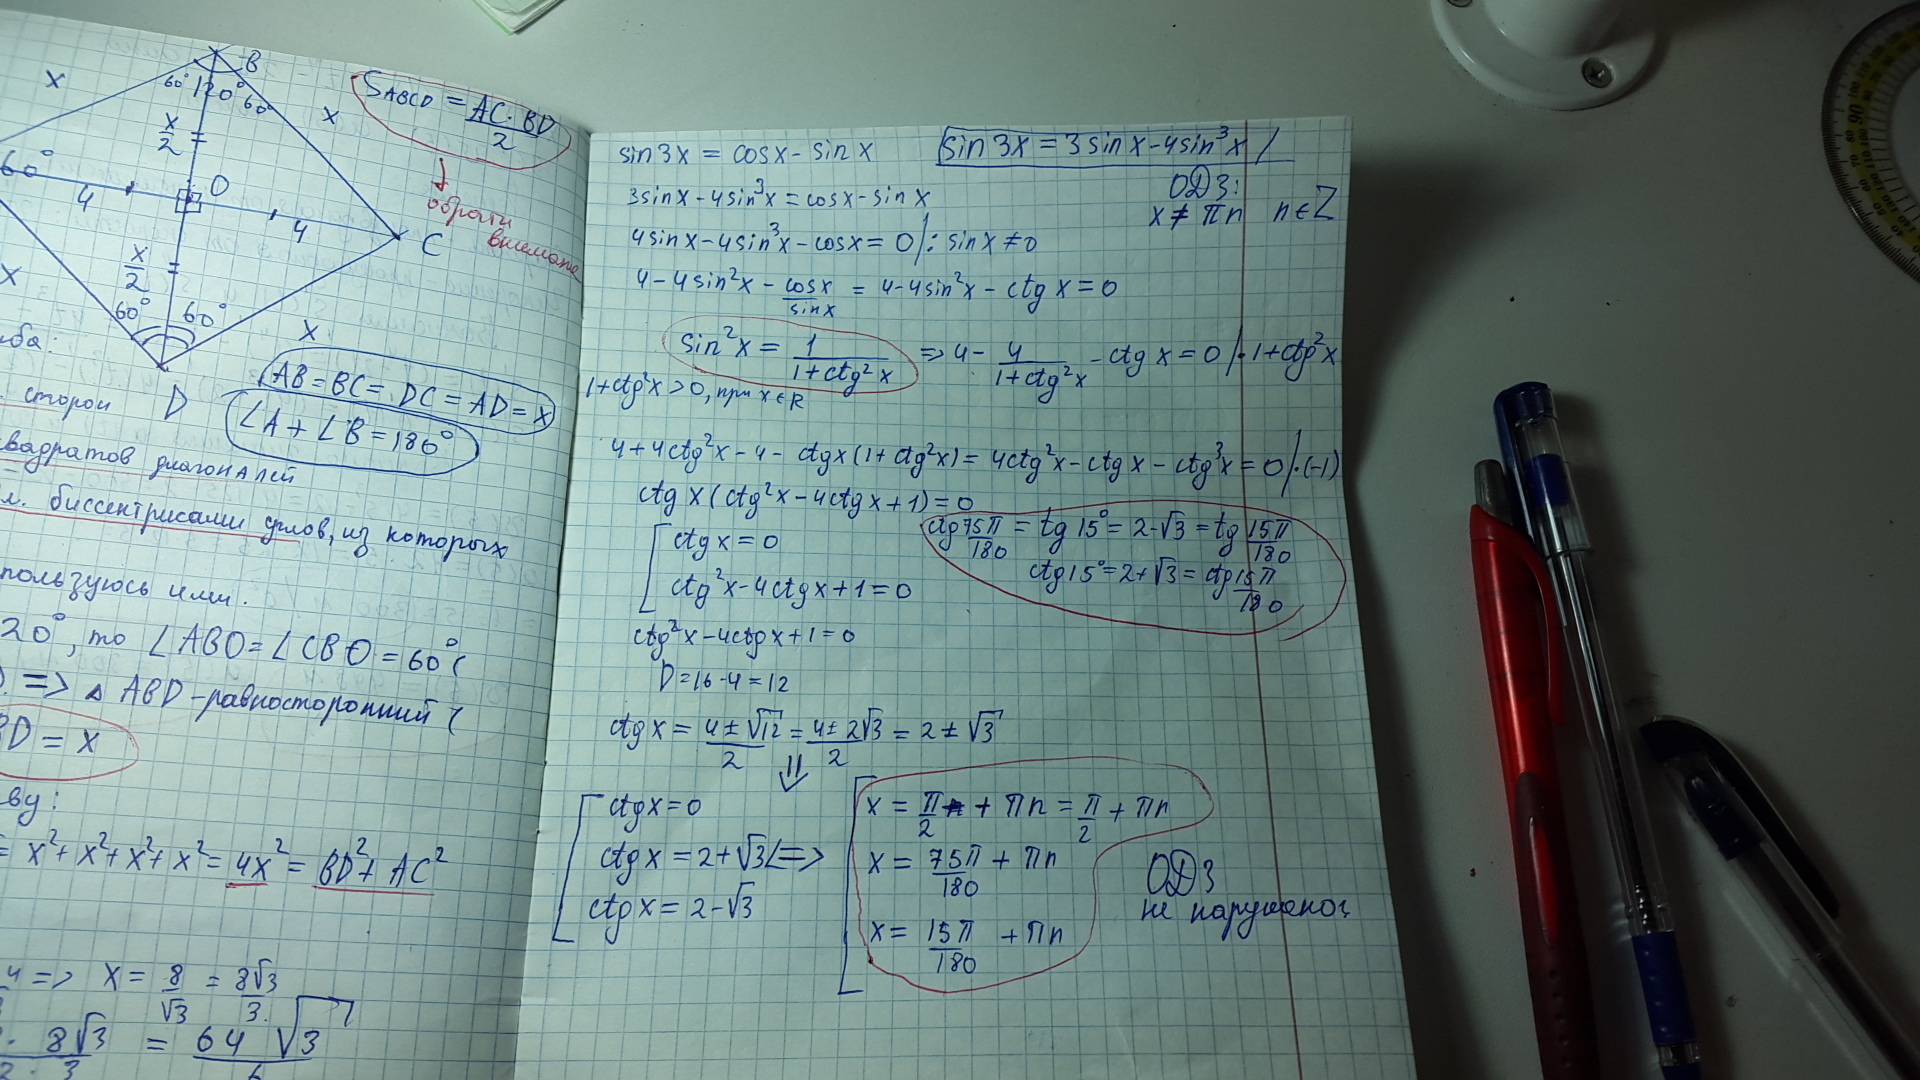 B
60° 120° 60°
x
x
S_ABCD = AC·BD / 2
x/2
60°
O
4
4
C
обрати
внимание
x/2
x
60° 60°
x
D
ба:
AB = BC = DC = AD = x
сторон
∠A + ∠B = 180°
вадратов диагоналей
биссектрисами углов, из которых
пользуюсь ими.
20°, то ∠ABO = ∠CBO = 60° (
=> △ ABD - равносторонний (
BD = x
ву:
= x² + x² + x² + x² = 4x² = BD² + AC²
4 => x = 8/√3 = 8√3/3
· 8√3 / 2 · 3 = 64√3 / 6
sin 3x = cosx - sin x
sin 3x = 3 sin x - 4 sin³x /
3 sin x - 4 sin³x = cosx - sin x
ОДЗ:
x ≠ πn n ∈ Z
4 sin x - 4 sin³x - cosx = 0 / : sin x ≠ 0
4 - 4 sin²x - cosx/sinx = 4 - 4 sin²x - ctg x = 0
sin²x = 1/(1 + ctg²x) => 4 - 4/(1 + ctg²x) - ctg x = 0 / · 1 + ctg²x
1 + ctg²x > 0, при x ∈ R
4 + 4ctg²x - 4 - ctgx (1 + ctg²x) = 4ctg²x - ctg x - ctg³x = 0 / · (-1)
ctg x (ctg²x - 4ctg x + 1) = 0
ctg x = 0
ctg²x - 4ctgx + 1 = 0
ctg 75π/180 = tg 15° = 2 - √3 = tg 15π/180
ctg 15° = 2 + √3 = ctg 15π/180
ctg²x - 4ctgx + 1 = 0
D = 16 - 4 = 12
ctg x = (4 ± √12)/2 = (4 ± 2√3)/2 = 2 ± √3
⇓
ctg x = 0
ctg x = 2 + √3 <=>
ctg x = 2 - √3
x = π/2 + πn = π/2 + πn
x = 75π/180 + πn
x = 15π/180 + πn
ОДЗ
не нарушено